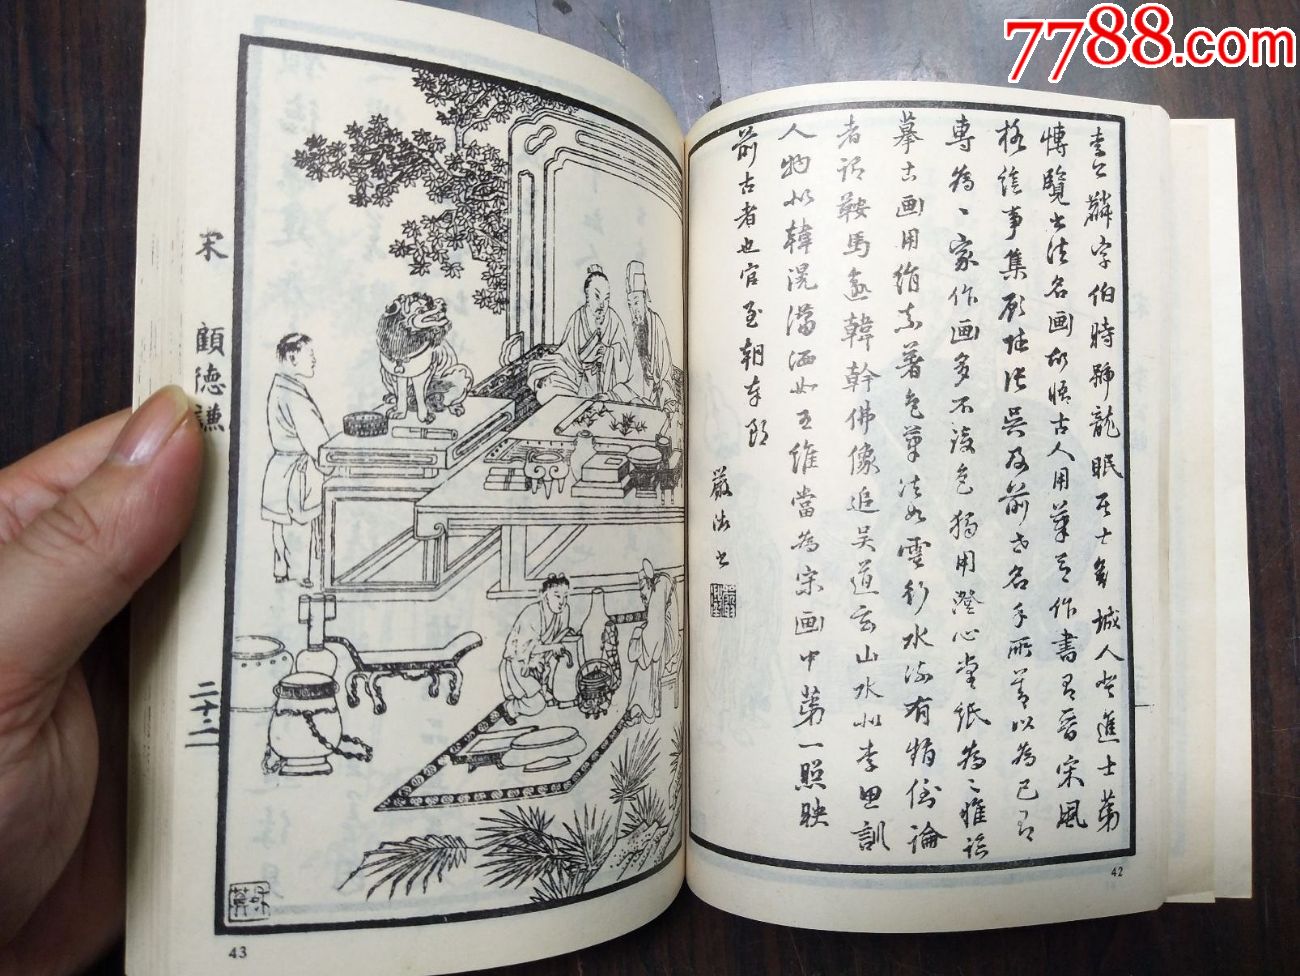 7788.com
李公麟字伯時號龍眠居士舒城人登進士第
博覽法書名画故悟古人用筆意作書有晉宋風
格繪事集顧陸張吳及前世名手所善以為己有
專為一家作画多不設色獨用澄心堂紙為之惟臨
摹古画用絹素著色筆法如雲行水流有情態論
者謂鞍馬逾韓幹佛像追吳道玄山水似李思訓
人物似韓滉瀟洒如王維當為宋画中第一照映
前古者也官至朝奉郎
嚴 書
42
宋 顧德謙
二十二
43